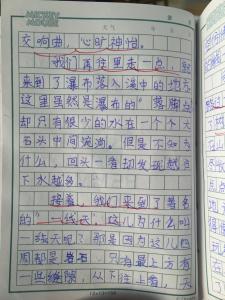 MICKEY
MOUSE
天气
交响曲，心旷神怡。
我们再往里走一点，就
来到了瀑布落入溪中的地方
这里虽然是瀑布的“落脚点
却只有很少的水在一个个大
石头中间流淌。但是不知为
什么，回头一看却发现越往
下水越多。
接着，我们来到了著名
的“一线天”，这儿为什么叫
一线天呢？那是因为这儿四
周都是岩石，只有最上方有
一些缝隙，从下往上看，天